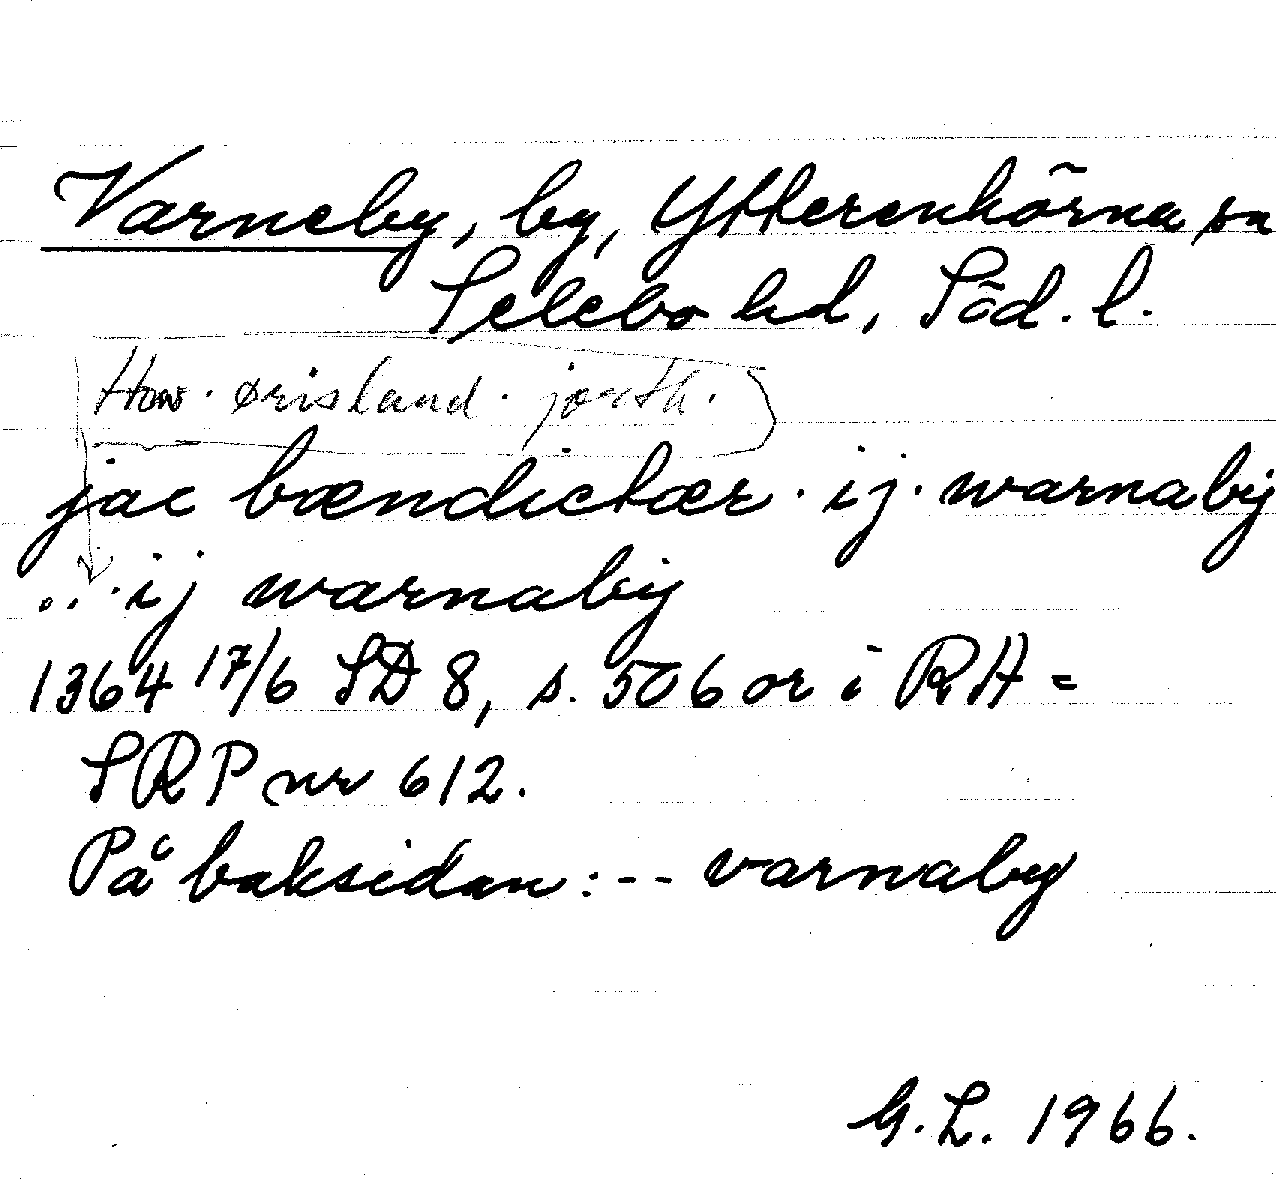 Varneby, by, Ytterenhörna sn
Selebo hd, Söd. l.
How. ørisland. jorth.
jac bændictær. ij. warnaby
... ij warnaby
1364 17/6 SD 8, s. 506 or i RA =
SRP nr 612.
På baksidan: -- varnaby
G.L. 1966.